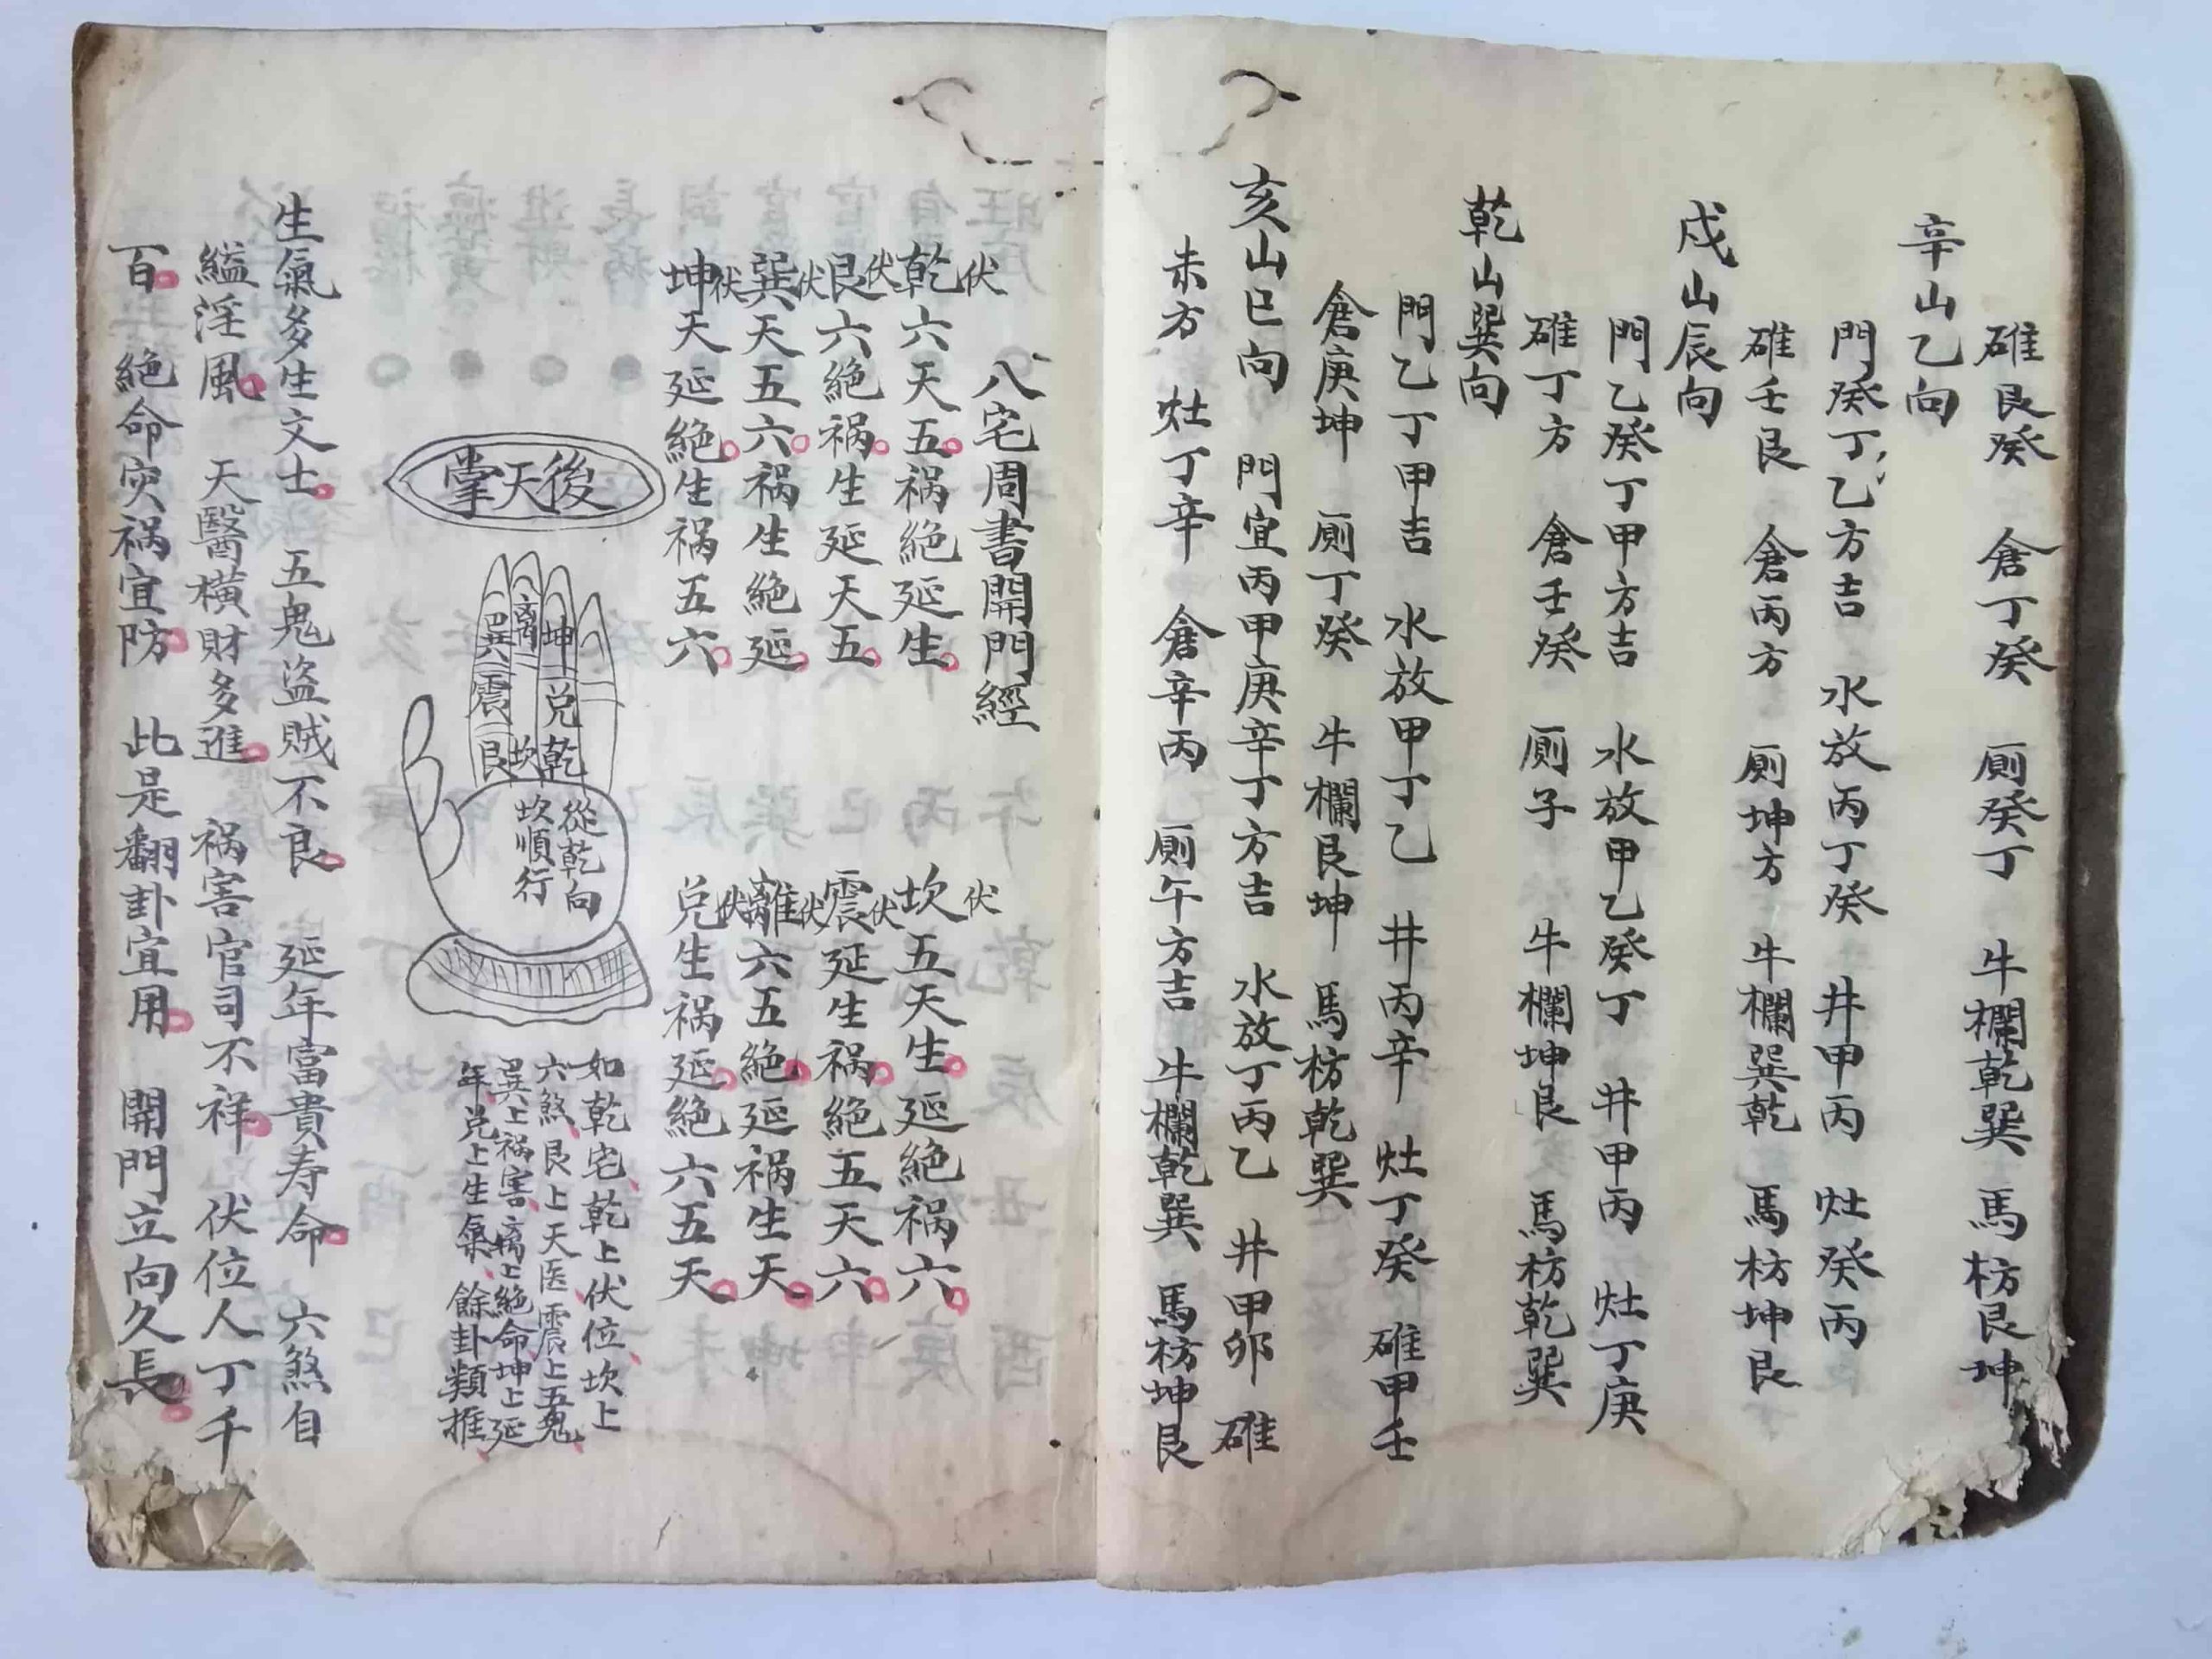 碓艮癸 倉丁癸 厠癸丁 牛欄乾巽 馬枋艮坤
辛山乙向
門癸丁乙方吉 水放丙丁癸 井甲丙 灶癸丙
碓壬艮 倉丙方 厠坤方 牛欄巽乾 馬枋坤艮
戌山辰向
門乙癸丁甲方吉 水放甲乙癸丁 井甲丙 灶丁庚
碓丁方 倉壬癸 厠子 牛欄坤艮 馬枋乾巽
乾山巽向
門乙丁甲吉 水放甲丁乙 井丙辛 灶丁癸 碓甲壬
倉庚坤 厠丁癸 牛欄艮坤 馬枋乾巽
亥山巳向 門宜丙甲庚辛丁方吉 水放丁丙乙 井甲卯 碓
未方 灶丁辛 倉辛丙 厠午方吉 牛欄乾巽 馬枋坤艮
八宅周書開門經
伏乾六天五。祸絕延生。 伏坎五天生。延絕祸六。
伏艮六絕祸。生延天五。 伏震延生祸。絕五天六。
伏巽天五六。祸生絕延。 伏離六五絕。延祸生天。
伏坤天延絕。生祸五六。 伏兑生祸延。絕六五天。
後天掌
巽 離 坤
震 兑
艮 坎 乾
從乾向
坎順行
如乾宅、乾上伏位、坎上
六煞、艮上天医、震上五鬼、
巽上祸害、離上絕命、坤上延
年、兑上生氣、餘卦類推、
生氣多生文士。 五鬼盜賊不良。 延年富貴寿命。 六煞自
縊淫風。 天醫橫財多進。 祸害官司不祥。 伏位人丁千
百。 絕命灾祸宜防。 此是翻卦宜用。 開門立向久長。